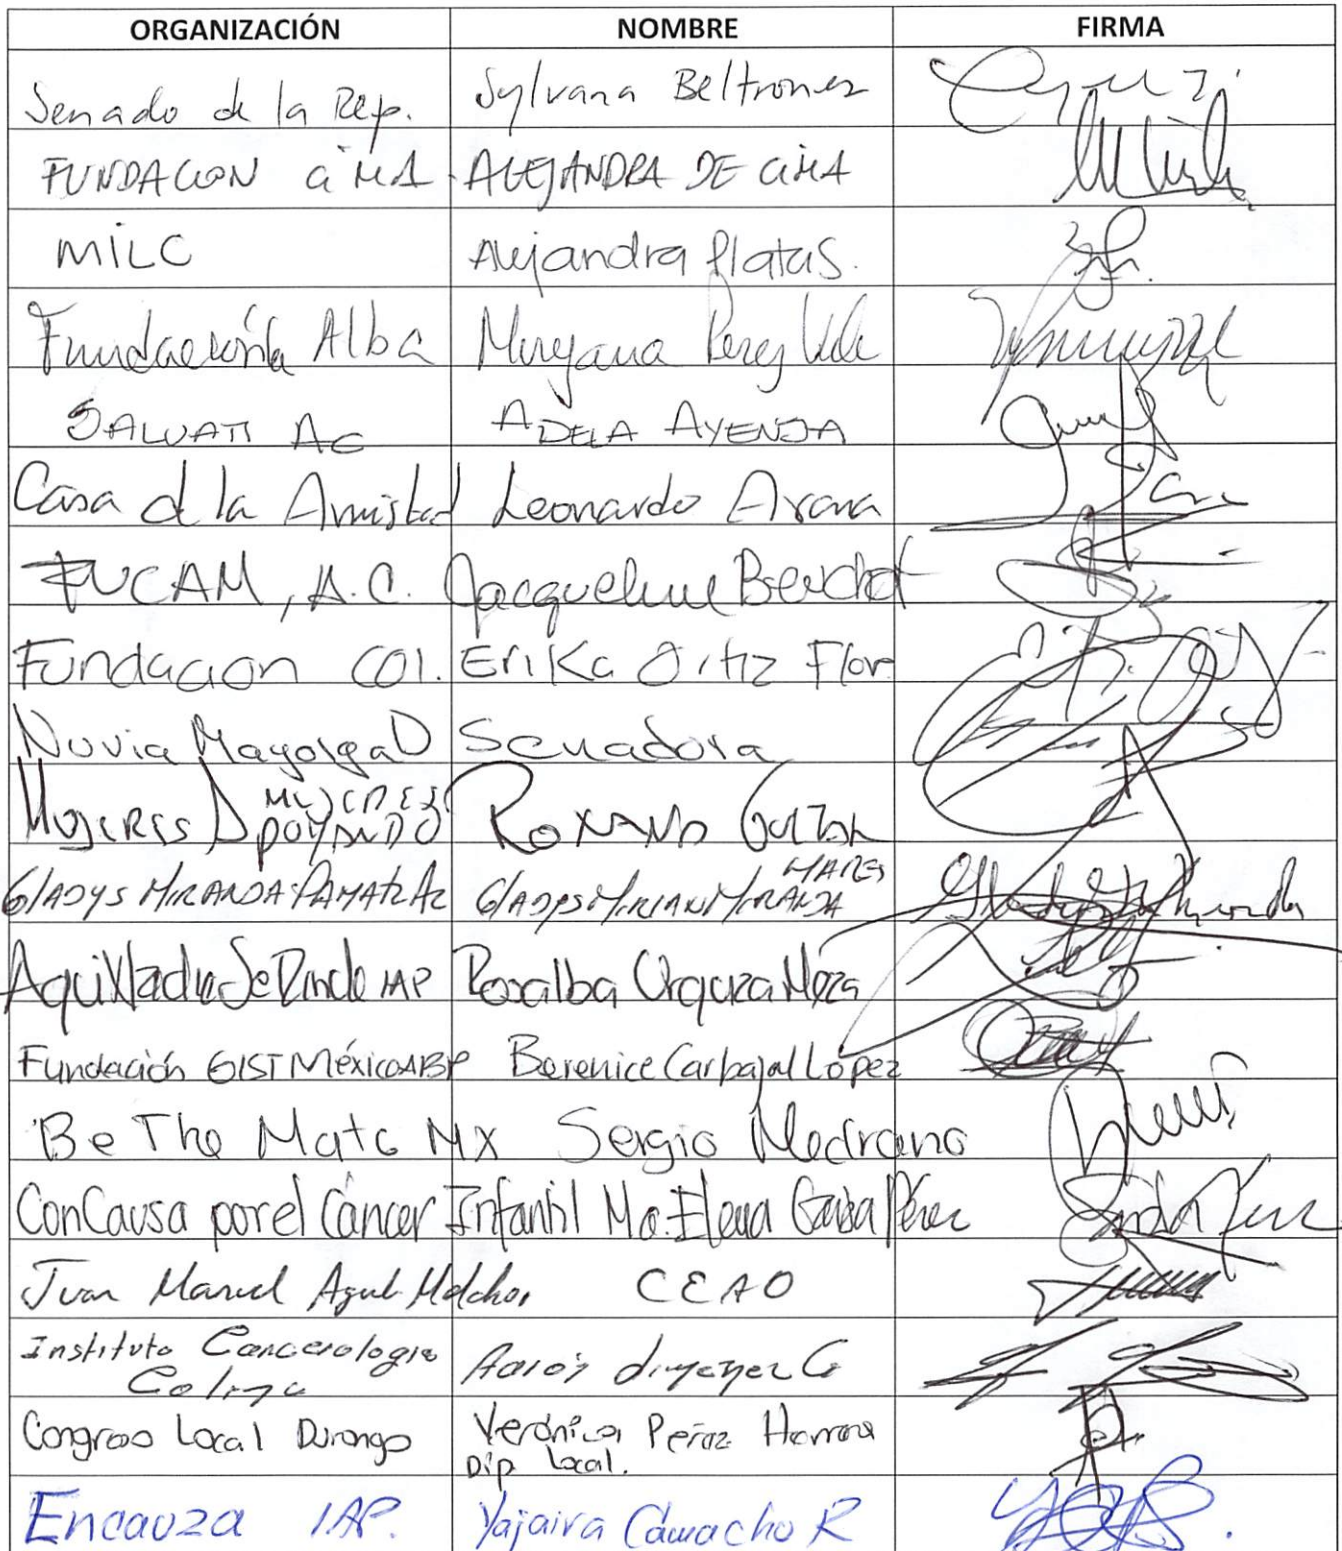 ORGANIZACIÓN NOMBRE FIRMA
Senado de la Rep. Sylvana Beltrones
FUNDACION CiMA ALEJANDRA DE CiMA
MILC Alejandra Platas.
Fundación Alba Pérez
SALVATI AC ADELA AYENSA
Casa d la Amistad Leonardo Arana
FUCAM, A.C. Jacqueline
Fundacion COI. Erika Ortiz Flor
Nuvia Mayorga D Senadora
MUJERES APOYANDO MUJERES ROXANA
GLADYS MIRANDA AC GLADYS MIRIAM MIRANDA MARES
Aqui Nadie Se Rinde IAP Rosalba
Fundación GIST México ABP Berenice Carbajal López
Be The Matc MX Sergio Medrano
ConCausa por el Cáncer Infantil Ma. Elena Pérez
Juan Manuel CEAO
Instituto Cancerologia
Colima
Congreso Local Durango Verónica Pérez Herrera
Dip Local.
Encauza IAP. Yajaira Camacho R